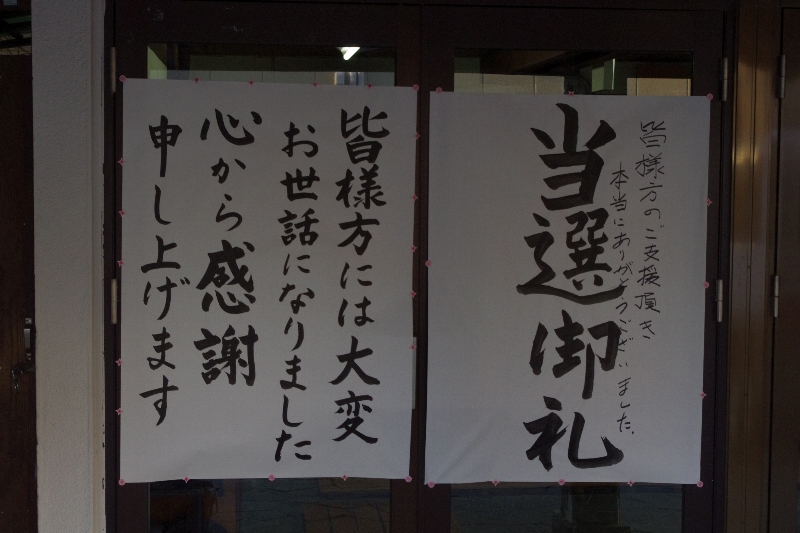 皆様方のご支援頂き
本当にありがとうございました。
当選御礼
皆様方には大変
お世話になりました
心から感謝
申し上げます